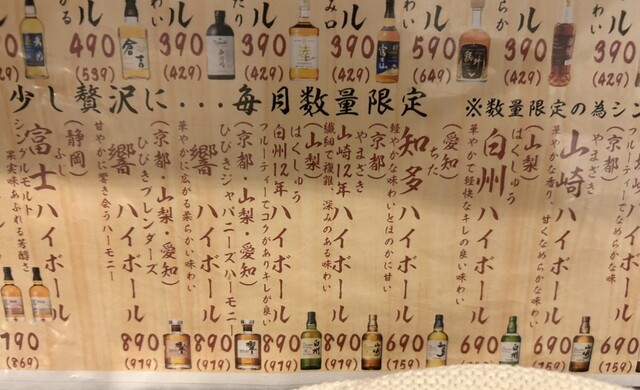 ル
490
(539)
ル
390
(429)
ル
390
(429)
ル
390
(429)
ル
590
(649)
ル
390
(429)
ル
390
(429)
少し贅沢に...毎月数量限定
※数量限定の為シン
やまざき
(京都)
山崎ハイボール
華やかな香り、甘くなめらかな味わい
690
(759)
はくしゅう
(山梨)
白州ハイボール
華やかで軽快なキレの良い味わい
690
(759)
ちた
(愛知)
知多ハイボール
軽やかな味わいとほのかに甘い
690
(759)
やまざき
(京都)
山崎12年ハイボール
繊細で複雑、深みのある味わい
890
(979)
はくしゅう
(山梨)
白州12年ハイボール
フルーティーでコクがありキレが良い
890
(979)
(京都・山梨・愛知)
ひびきジャパニーズハーモニー
響ハイボール
華やかに広がる柔らかい味わい
890
(979)
(京都・山梨・愛知)
ひびきブレンダーズ
響ハイボール
甘やかに響き合うハーモニー
890
(979)
(静岡)
ふじ
富士ハイボール
シングルモルト
果実味あふれる芳醇さ
790
(869)